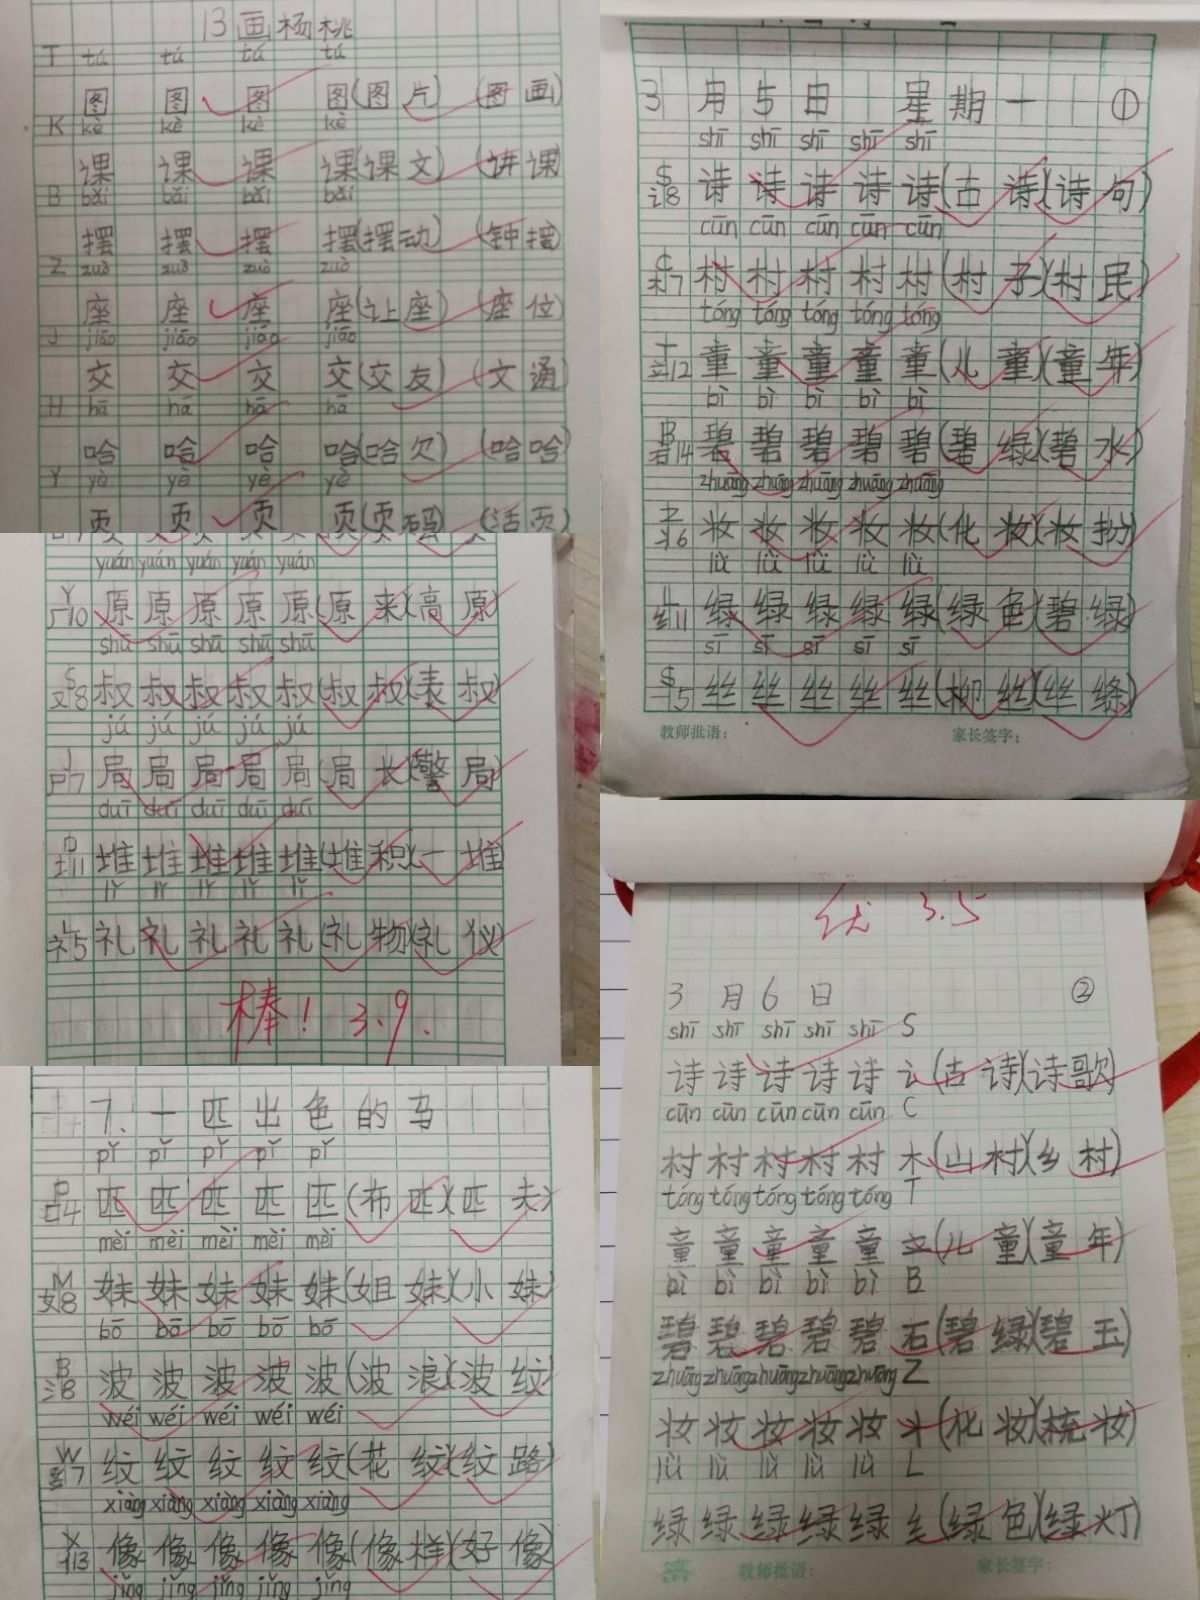 13画杨桃
T tú tú tú tú
图 图 图 图(图片)(图画)
K kè kè kè kè
课 课 课 课(课文)(讲课)
B bǎi bǎi bǎi bǎi
摆 摆 摆 摆(摆动)(钟摆)
Z zuò zuò zuò zuò
座 座 座 座(让座)(座位)
J jiāo jiāo jiāo jiāo
交 交 交 交(交友)(交通)
H hā hā hā hā
哈 哈 哈 哈(哈欠)(哈哈)
Y yè yè yè yè
页 页 页 页(页码)(活页)
yuán yuán yuán yuán yuán
Y
厂10 原 原 原 原 原(原来)(高原)
shū shū shū shū shū
S
又8 叔 叔 叔 叔 叔(叔叔)(表叔)
jú jú jú jú jú
J
尸7 局 局 局 局 局(局长)(警局)
duī duī duī duī duī
D
土11 堆 堆 堆 堆 堆(堆积)(一堆)
lǐ lǐ lǐ lǐ lǐ
L
礻5 礼 礼 礼 礼 礼(礼物)(礼仪)
棒! 3.9.
7. 一匹出色的马
pǐ pǐ pǐ pǐ pǐ
P
匚4 匹 匹 匹 匹 匹(布匹)(匹夫)
mèi mèi mèi mèi mèi
M
女8 妹 妹 妹 妹 妹(姐妹)(小妹)
bō bō bō bō bō
B
氵8 波 波 波 波 波(波浪)(波纹)
wéi wéi wéi wéi wéi
W
纟7 纹 纹 纹 纹 纹(花纹)(纹路)
xiàng xiàng xiàng xiàng xiàng
X
亻13 像 像 像 像 像(像样)(好像)
jǐng jǐng jǐng jǐng jǐng
3月5日 星期一 ①
shī shī shī shī shī
S
讠8 诗 诗 诗 诗 诗(古诗)(诗句)
cūn cūn cūn cūn cūn
C
木7 村 村 村 村 村(村子)(村民)
tóng tóng tóng tóng tóng
T
立12 童 童 童 童 童(儿童)(童年)
bì bì bì bì bì
B
石14 碧 碧 碧 碧 碧(碧绿)(碧水)
zhuāng zhuāng zhuāng zhuāng zhuāng
Z
丬6 妆 妆 妆 妆 妆(化妆)(妆扮)
lǜ lǜ lǜ lǜ lǜ
L
纟11 绿 绿 绿 绿 绿(绿色)(碧绿)
sī sī sī sī sī
S
5 丝 丝 丝 丝 丝(柳丝)(丝绦)
教师批语: 家长签字:
优 3.5
3月6日 ②
shī shī shī shī shī S
诗 诗 诗 诗 诗 讠(古诗)(诗歌)
cūn cūn cūn cūn cūn C
村 村 村 村 村 木(山村)(乡村)
tóng tóng tóng tóng tóng T
童 童 童 童 童 立(儿童)(童年)
bì bì bì bì bì B
碧 碧 碧 碧 碧 石(碧绿)(碧玉)
zhuāng zhuāng zhuāng zhuāng zhuāng Z
妆 妆 妆 妆 妆 丬(化妆)(梳妆)
lǜ lǜ lǜ lǜ lǜ L
绿 绿 绿 绿 绿 纟(绿色)(绿灯)
教师批语: 家长签字: